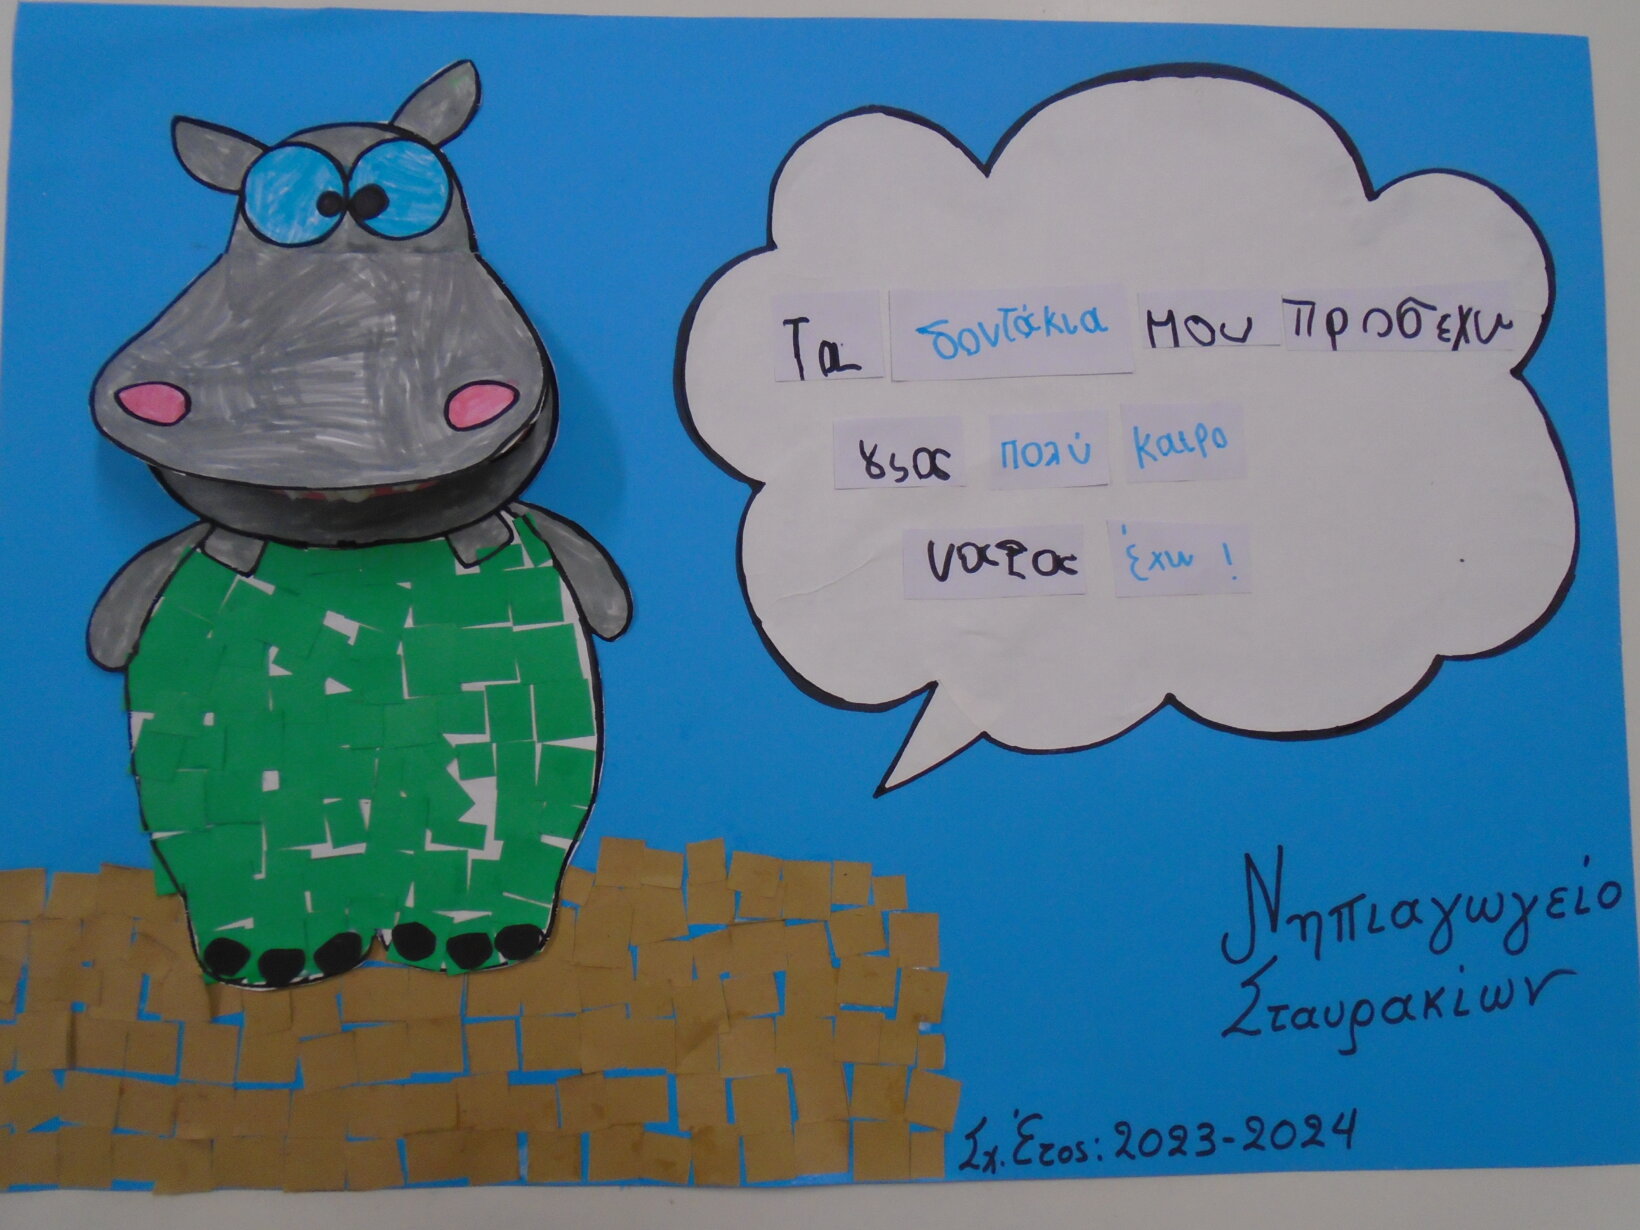 Τα δοντάκια μου προσεχω
για πολύ καιρο
να τα έχω !
Νηπιαγωγείο
Σταυρακίων
Σχ. Έτος: 2023-2024